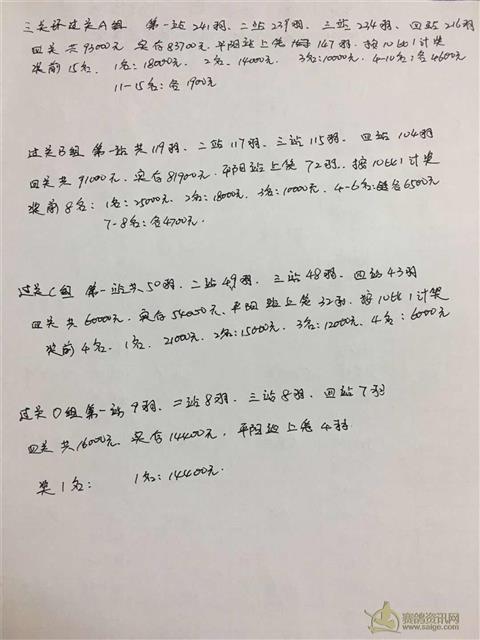 三关环过关A组 第一站241羽、二站239羽、三站234羽、四站216羽
四关共93000元、实存83700元、平阳站上笼147羽、按10比1计奖
奖前15名、1名:18000元、2名:14000元、3名:10000元、4-10名:各4600元
11-15名:各1900元
过关B组 第一站共119羽、二站117羽、三站115羽、四站104羽
四关共91000元、实存81900元、平阳站上笼72羽、按10比1计奖
奖前8名:1名:25000元、2名:18000元、3名:10000元、4-6名:各6500元
7-8名:各4700元.
过关C组 第一站共50羽、二站49羽、三站48羽、四站43羽
四关共60000元、实存54000元、平阳站上笼32羽、按10比1计奖
奖前4名、1名、21000元、2名:15000元、3名:12000元、4名:6000元
过关D组第一站9羽、二站8羽、三站8羽、四站7羽
四关共16000元、实存14400元、平阳站上笼4羽
奖1名: 1名:14400元.
赛鸽资讯网
www.saige.com